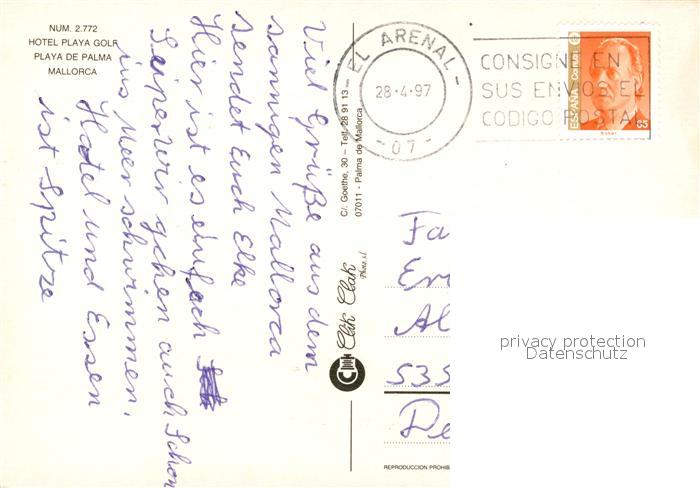 NUM. 2.772
HOTEL PLAYA GOLF
PLAYA DE PALMA
MALLORCA
Viel Grüße aus dem
sonnigen Mallorca
sendet Euch Elke
Hier ist es einfach
wir gehen auch schon
ins Meer schwimmen.
Hotel und Essen
ist Spitze
C/. Goethe, 30 – Telf. 28 91 13
07011 - Palma de Mallorca
Clik Clak
Photo s.l.
EL ARENAL
28-4-97
- 07 -
CONSIGNE EN
SUS ENVIOS EL
CODIGO POSTAL
ESPAÑA Correos
65
Fa
Er
Al
535
De
privacy protection
Datenschutz
REPRODUCCION PROHIB